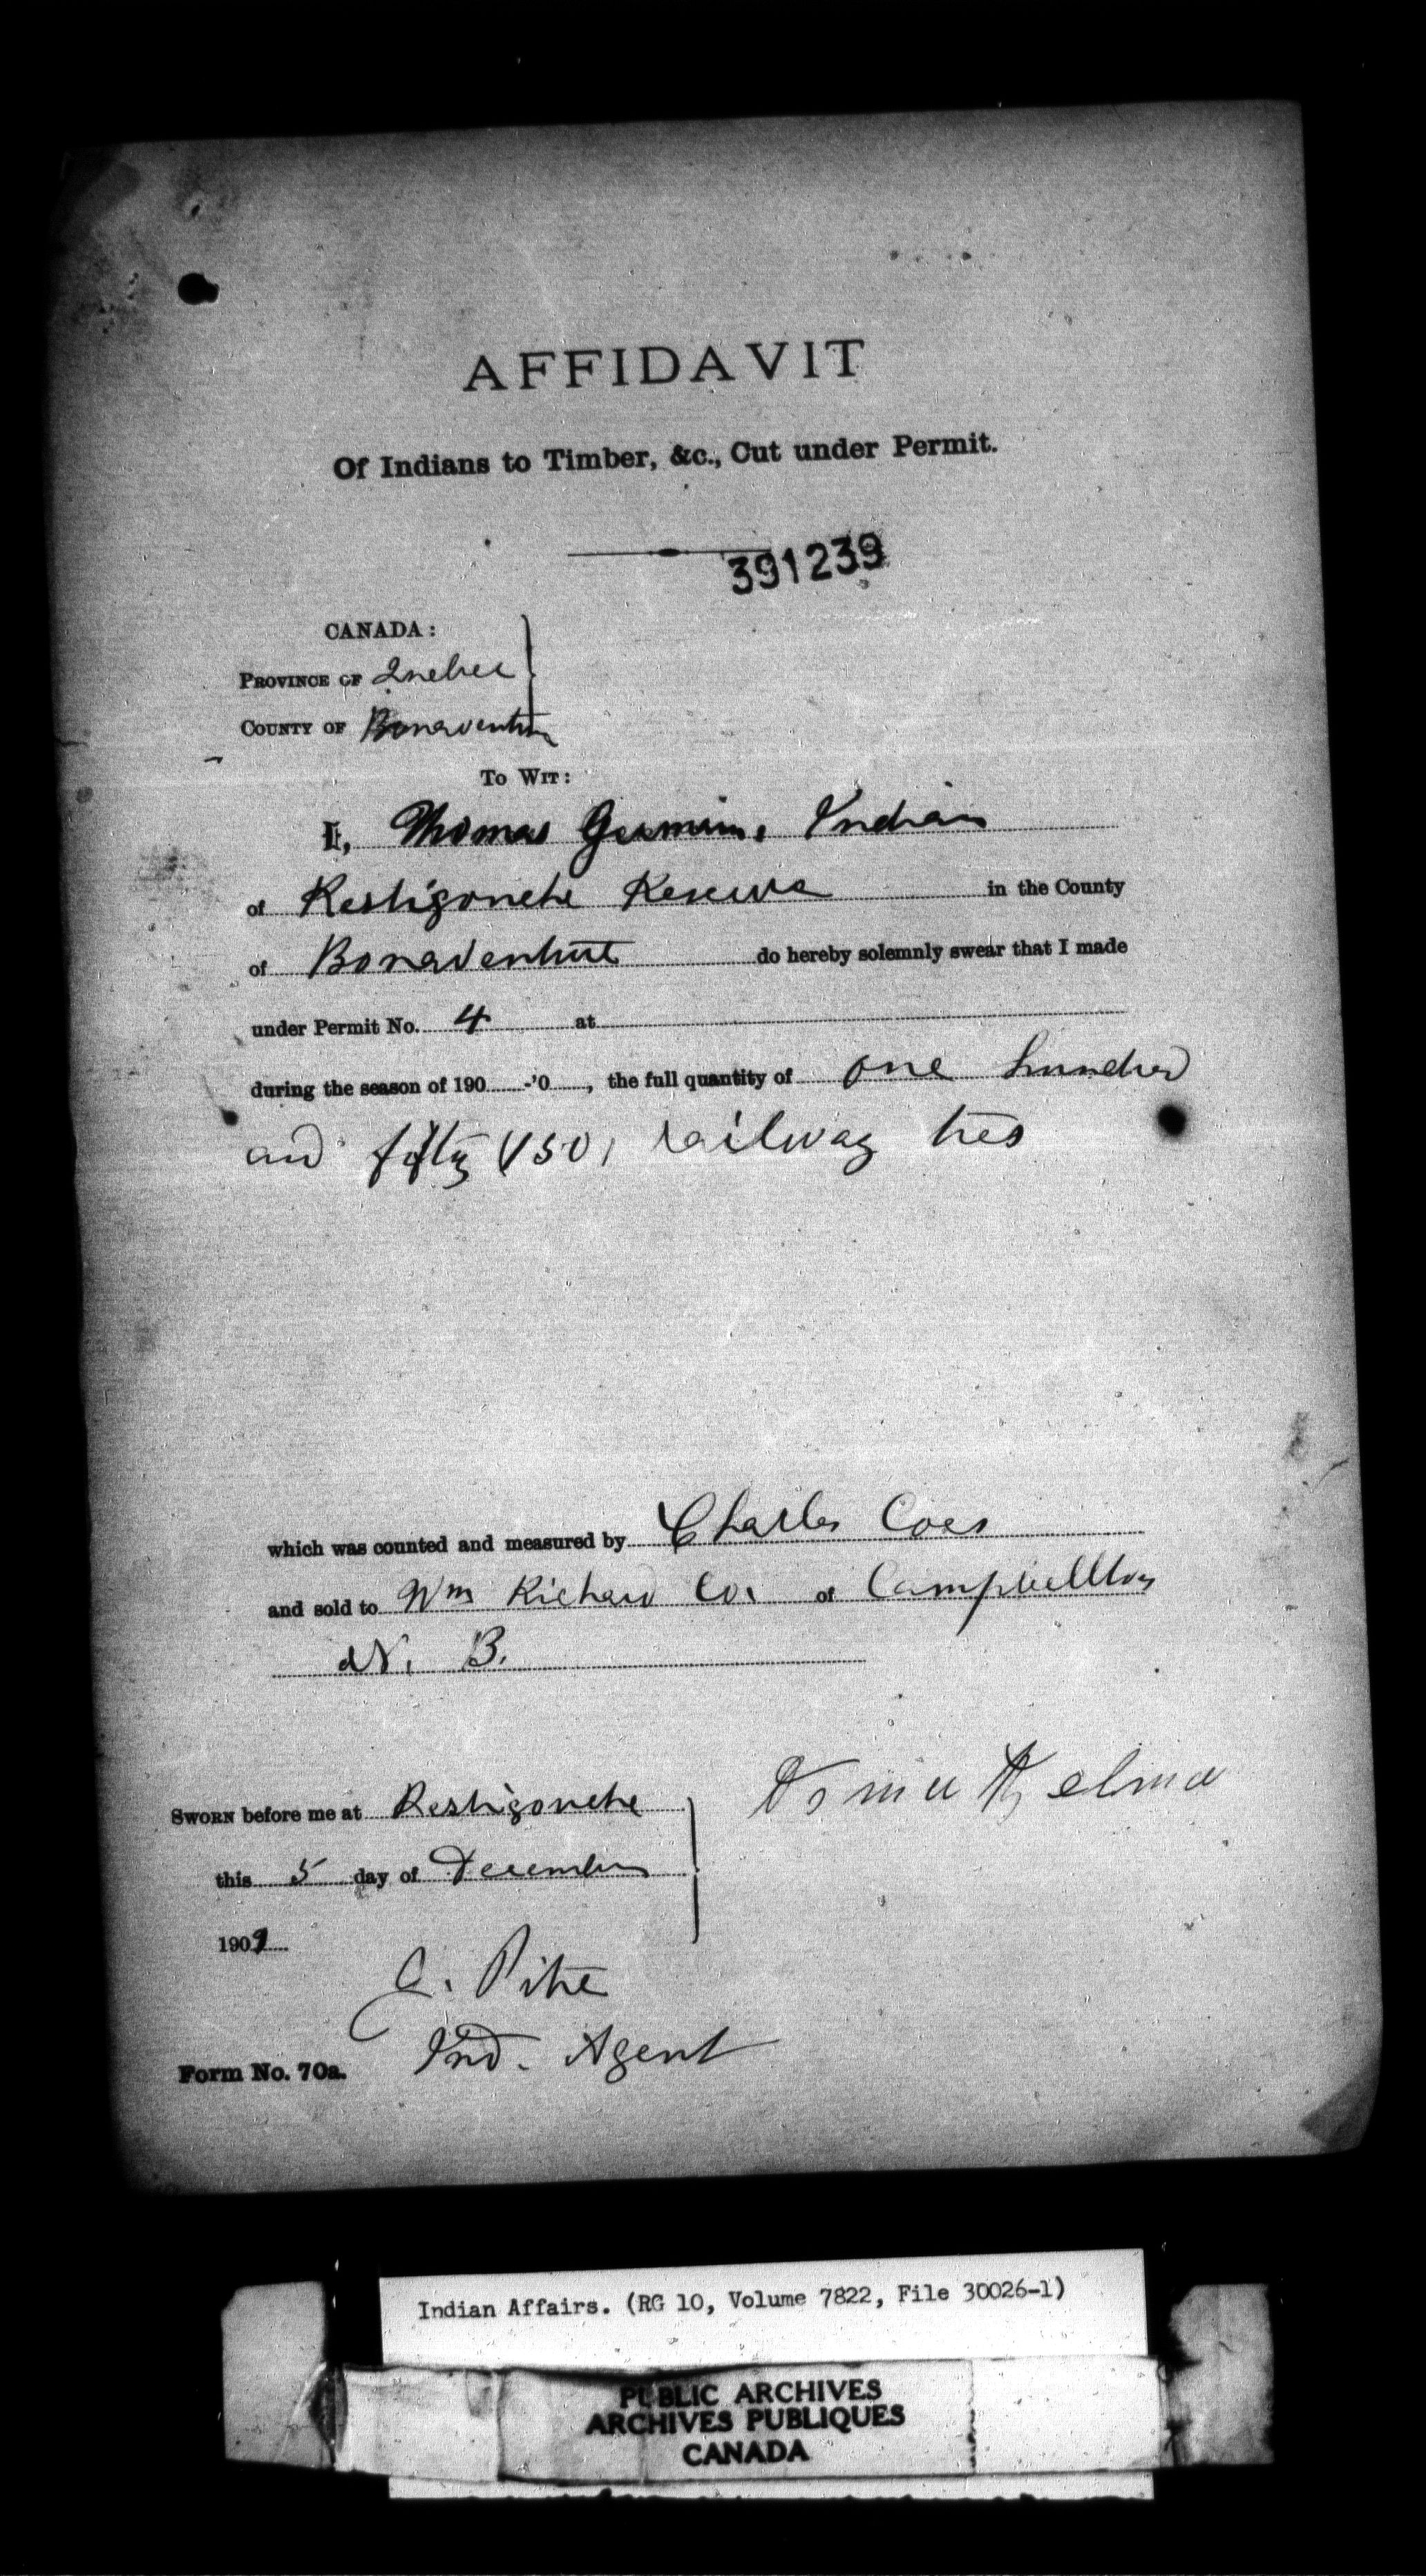 AFFIDAVIT
Of Indians to Timber, &c., Cut under Permit.
391239
CANADA:
PROVINCE OF Quebec
COUNTY OF Bonaventure
TO WIT:
I, Thomas Germain, Indian
of Restigouche Reserve in the County
of Bonaventure do hereby solemnly swear that I made
under Permit No. 4 at
during the season of 190 -'0 , the full quantity of one hundred
and fifty (150) railway ties
which was counted and measured by Charles Coes
and sold to Wm Richard Co. of Campbellton
N. B.
SWORN before me at Restigouche
this 5 day of December
1909
J. Pitre
Ind. Agent
Form No. 70a.
Indian Affairs. (RG 10, Volume 7822, File 30026-1)
PUBLIC ARCHIVES
ARCHIVES PUBLIQUES
CANADA